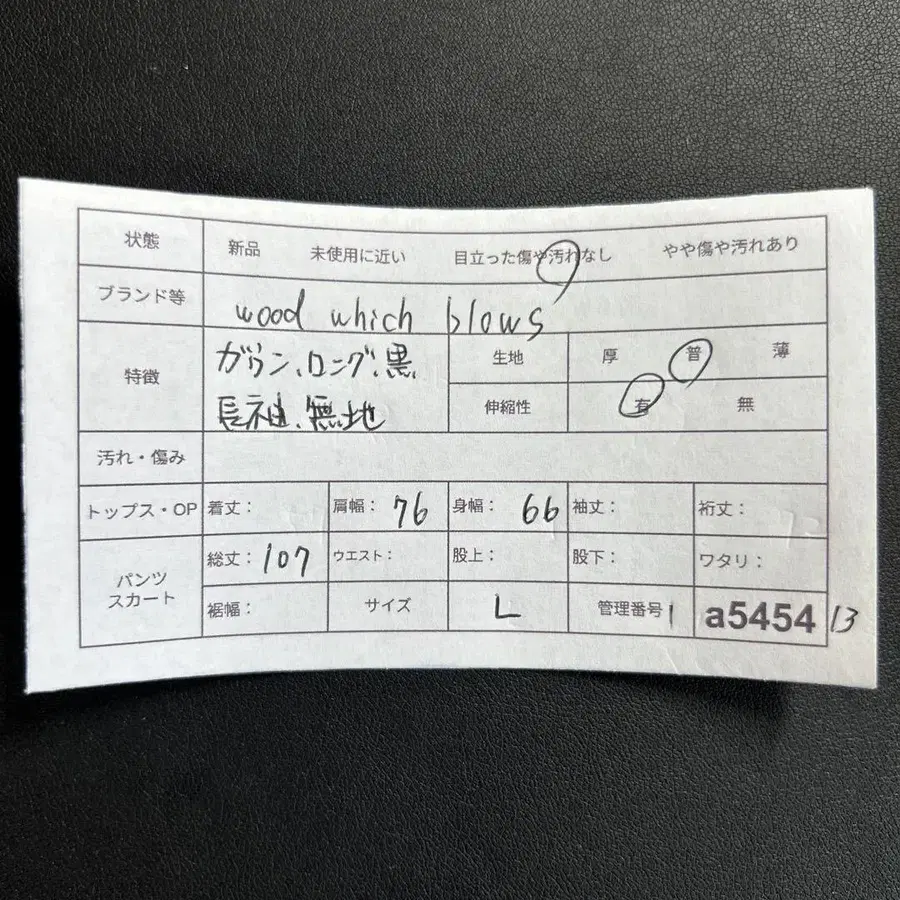 状態 新品 未使用に近い 目立った傷や汚れなし やや傷や汚れあり
ブランド等 wood which blows
特徴 ガウン、ロング、黒、
長袖、無地
生地 厚 普 薄
伸縮性 有 無
汚れ・傷み
トップス・OP 着丈: 肩幅: 76 身幅: 66 袖丈: 裄丈:
パンツ
スカート
総丈: 107 ウエスト: 股上: 股下: ワタリ:
裾幅: サイズ L 管理番号 1 a5454 13